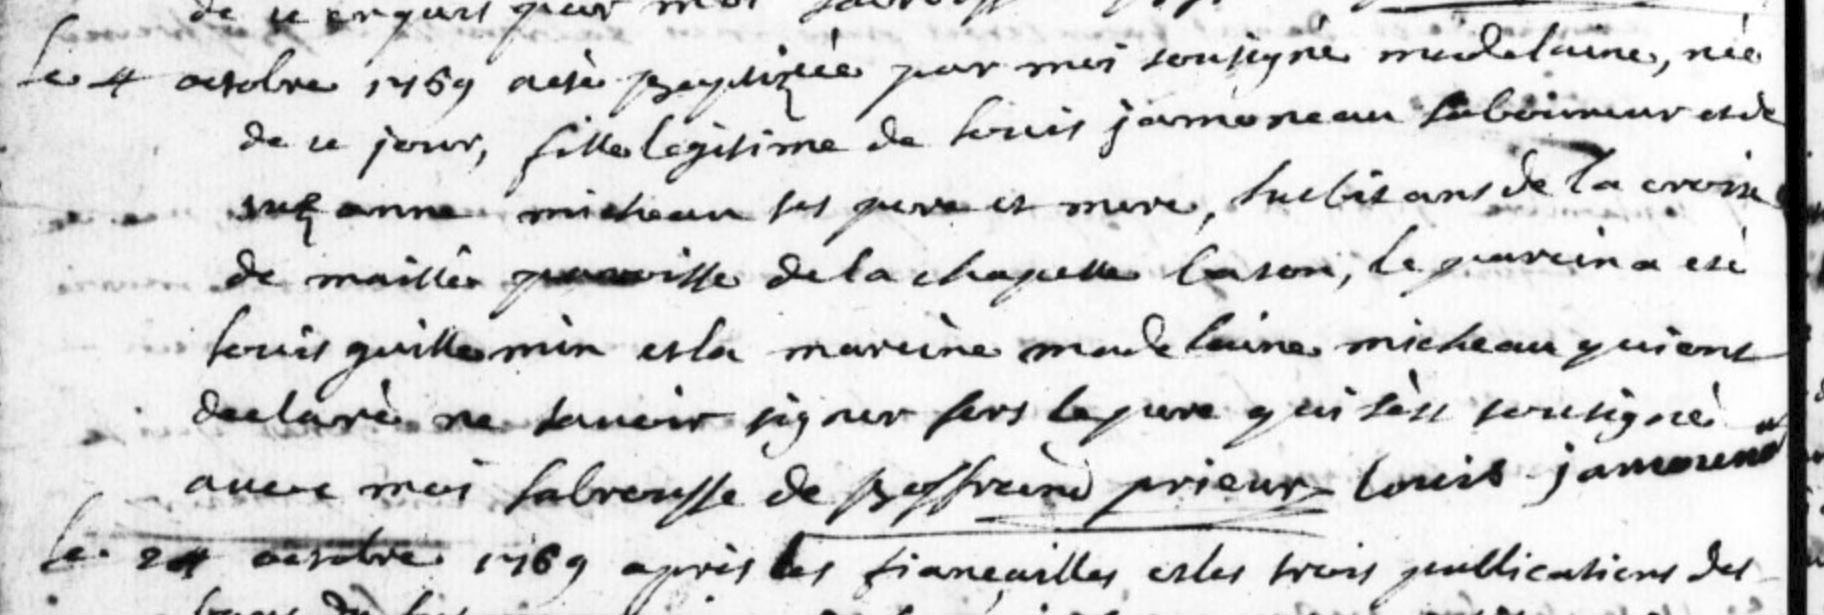 de ce enquis par moi
Le 4 octobre 1769 a eté baptizée par moi sousigné madelaine, née
de ce jour, fille legitime de louis jamoneau laboureur et de
suzanne micheau ses pere et mere, habitans de la croix
de maillé paroisse de la chapelle baton, le parein a eté
louis guillemin et la mareine madelaine micheau qui ont
declaré ne savoir signer fors le pere qui s'est sousigné
avec moi labrousse de prieur louis jamoneau
Le 24 octobre 1769 après les fiançailles et les trois publications des